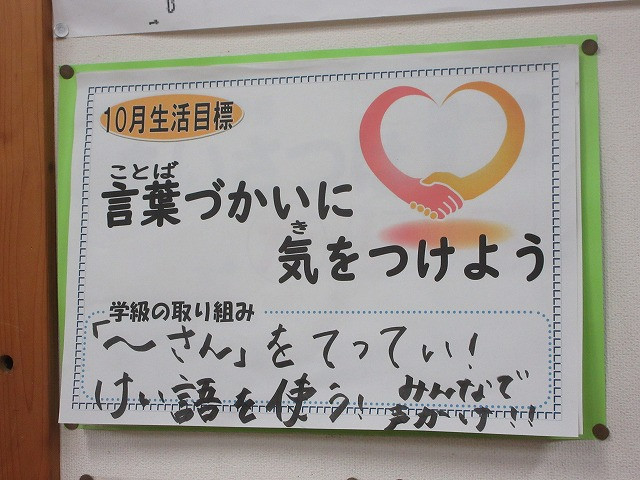 10月生活目標
ことば
言葉づかいに
き
気をつけよう
学級の取り組み
「〜さん」をてってい!
けい語を使う! みんなで
声かけ!!